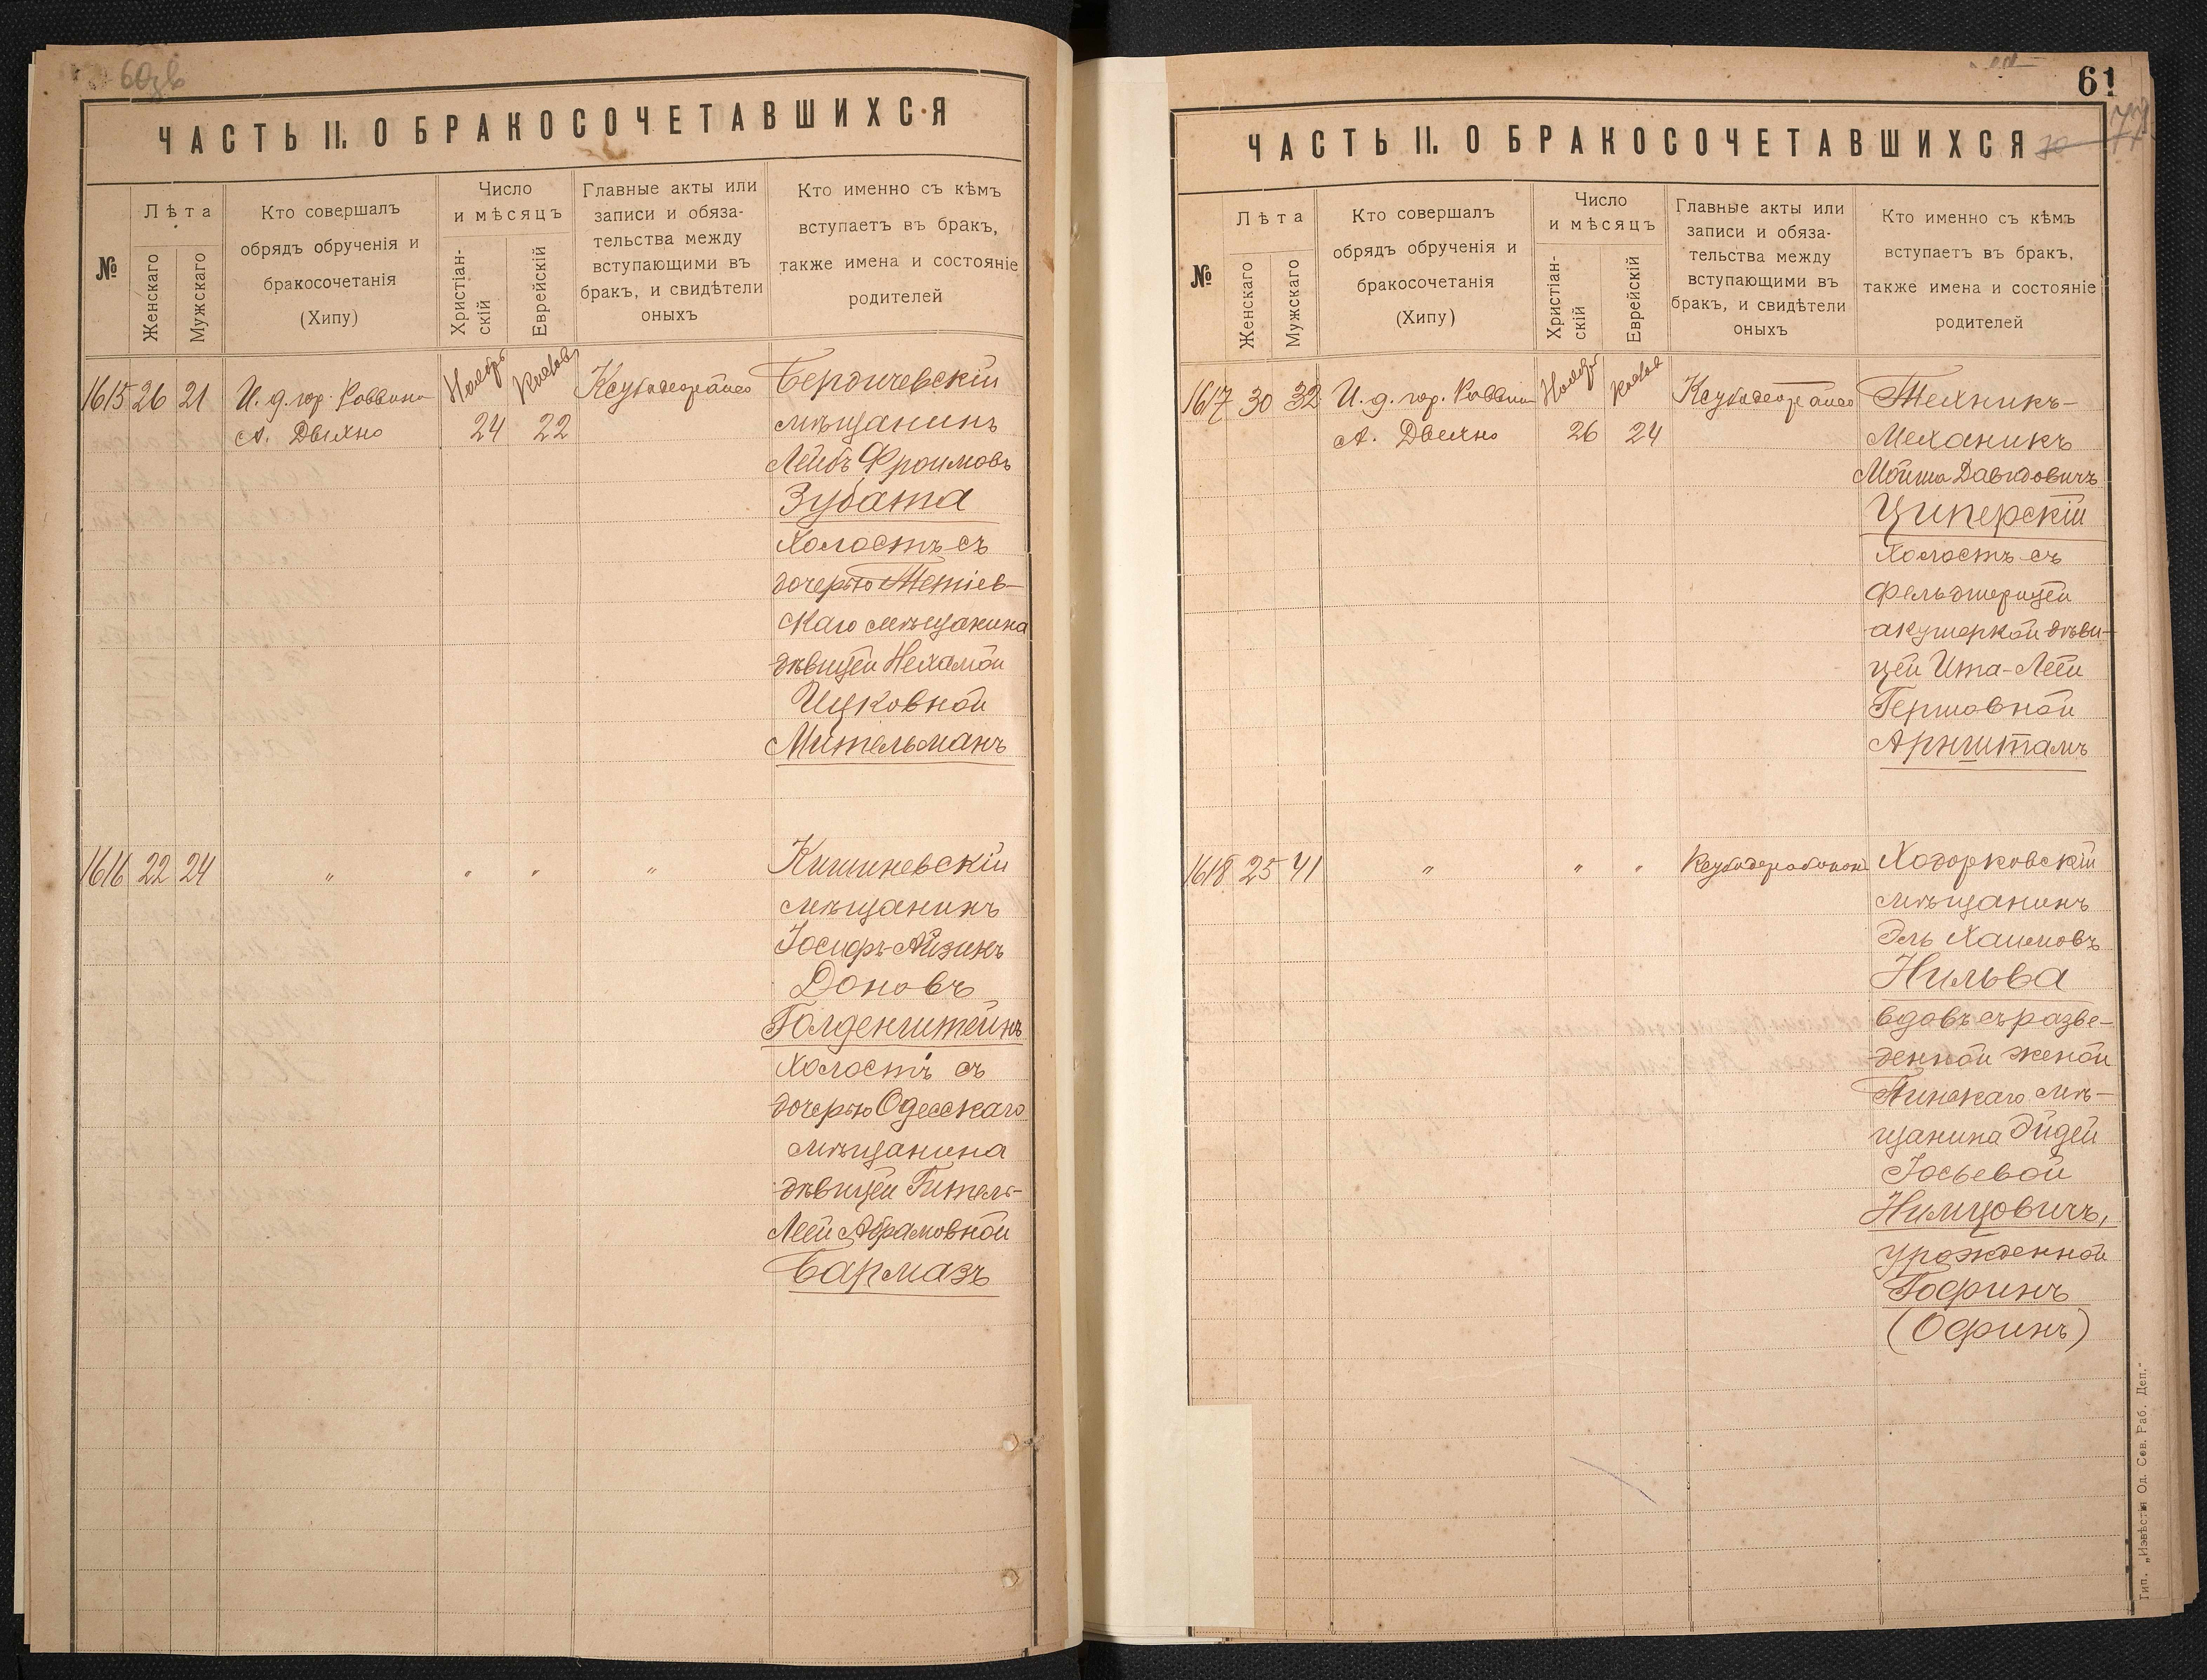 60зв
ЧАСТЬ II. О БРАКОСОЧЕТАВШИХСЯ
№
Лѣта
Женскаго
Мужскаго
Кто совершалъ
обрядъ обрученія и
бракосочетанія
(Хипу)
Число
и мѣсяцъ
Христіан-
скій
Еврейскій
Главные акты или
записи и обяза-
тельства между
вступающими въ
бракъ, и свидѣтели
оныхъ
Кто именно съ кѣмъ
вступаетъ въ бракъ,
также имена и состояніе
родителей
1615 26 21 И. д. гор. Раввина Ноябрь Кислевъ
А. Двихно 24 22
Бердичевскій
мѣщанинъ
Лейбъ Фроимовъ
Зубата
холостъ съ
дочерью Тетіев-
скаго мѣщанина
дѣвицей Нехамой
Ицковной
Мительманъ
1616 22 24 " " " "
Кишиневскій
мѣщанинъ
Іосифъ-Айзикъ
Доновъ
Голденштейнъ
холостъ съ
дочерью Одесскаго
мѣщанина
дѣвицей Гитель-
Леей Абрамовной
Бармазъ
61
77
ЧАСТЬ II. О БРАКОСОЧЕТАВШИХСЯ
№
Лѣта
Женскаго
Мужскаго
Кто совершалъ
обрядъ обрученія и
бракосочетанія
(Хипу)
Число
и мѣсяцъ
Христіан-
скій
Еврейскій
Главные акты или
записи и обяза-
тельства между
вступающими въ
бракъ, и свидѣтели
оныхъ
Кто именно съ кѣмъ
вступаетъ въ бракъ,
также имена и состояніе
родителей
1617 30 32 И. д. гор. Раввина Ноябрь Кислев
А. Двихно 26 24
Техникъ-
Механикъ
Мойша Давидовичъ
Циперскій
холостъ съ
фельдшерицей
акушеркой дѣви-
цей Ита-Леей
Гершовной
Арнштамъ
1618 25 41 " " "
Ходорковскій
мѣщанинъ
Эль Хаимовъ
Нильва
вдовъ съ разве-
денной женой
Пинскаго мѣ-
щанина Эйдей
Іосьевой
Нимцовичъ,
урожденной
Гофинъ
(Офинъ)
Тип. „Извѣстія Од. Сов. Раб. Деп."